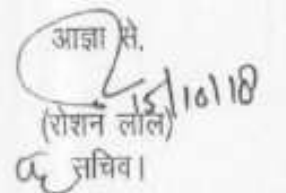 आज्ञा से,
15/10/18
(रोशन लाल)
सचिव।